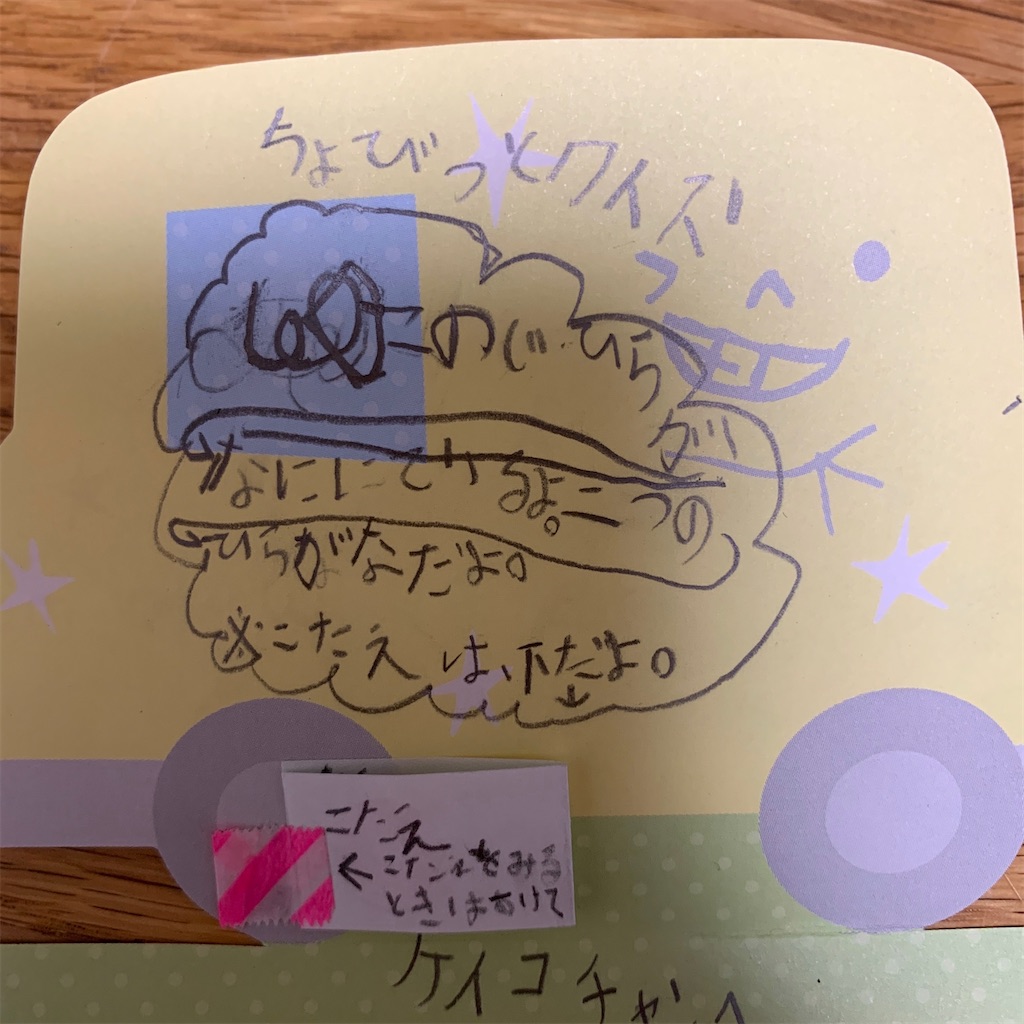 ちょびっとクイズ
このじ、ひらが
なににてけるよ。二つの
ひらがなだよ。
※こたえは、下だよ。
こたえ
←こたえをみる
ときはあけて
ケイコチャンへ